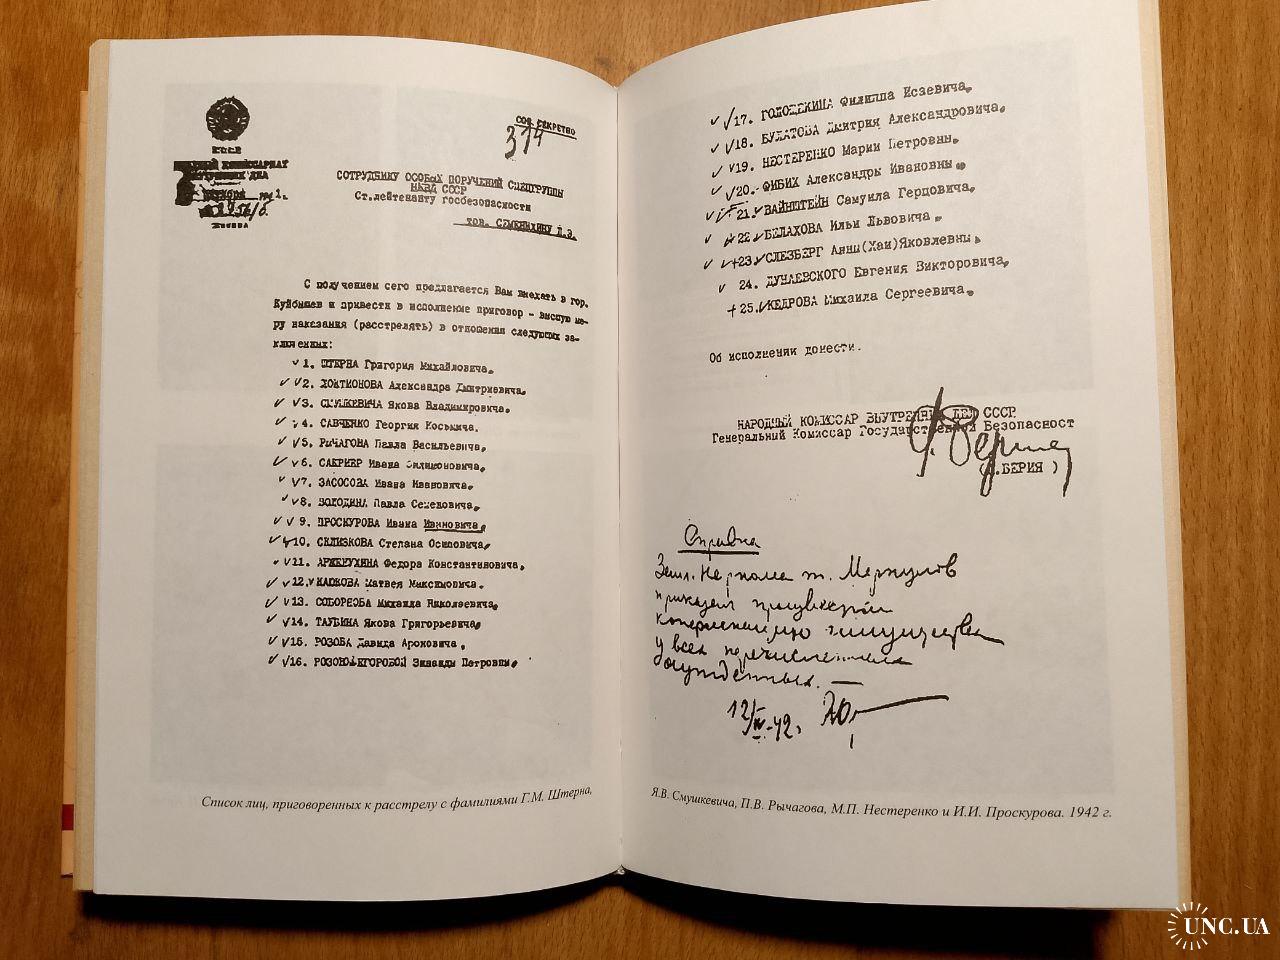 СССР
НАРОДНЫЙ КОМИССАРИАТ
ВНУТРЕННИХ ДЕЛ
октября 1941 г.
№ 2756/Б
МОСКВА
СОВ. СЕКРЕТНО
374
СОТРУДНИКУ ОСОБЫХ ПОРУЧЕНИЙ СПЕЦГРУППЫ
НКВД СССР
Ст.лейтенанту госбезопасности
тов. СЕМЕНИХИНУ Д.Э.
С получением сего предлагается Вам выехать в гор.
Куйбышев и привести в исполнение приговор – высшую ме-
ру наказания (расстрелять) в отношении следующих за-
ключенных:
1. ШТЕРНА Григория Михайловича,
2. ЛОКТИОНОВА Александра Дмитриевича,
3. СМУШКЕВИЧА Якова Владимировича,
4. САВЧЕНКО Георгия Косьмича,
5. РЫЧАГОВА Павла Васильевича,
6. САКРИЕР Ивана Филимоновича,
7. ЗАСОСОВА Ивана Ивановича,
8. ВОЛОДИНА Павла Семеновича,
9. ПРОСКУРОВА Ивана Ивановича,
10. СКЛИЗКОВА Степана Осиповича,
11. АРЖЕНУХИНА Федора Константиновича,
12. КАЮКОВА Матвея Максимовича,
13. СОБОРНОВА Михаила Николаевича,
14. ТАУБИНА Якова Григорьевича,
15. РОЗОВА Давида Ароновича,
16. РОЗОВУ-ЕГОРОВОЙ Зинаиды Петровны,
17. ГОЛОЩЕКИНА Филиппа Исаевича,
18. БУЛАТОВА Дмитрия Александровича,
19. НЕСТЕРЕНКО Марии Петровны,
20. ФИБИХ Александры Ивановны,
21. ВАЙНШТЕЙН Самуила Герцовича,
22. БЕЛАХОВА Ильи Львовича,
23. СЛЕЗБЕРГ Анны(Хаи)Яковлевны,
24. ДУНАЕВСКОГО Евгения Викторовича,
25. КЕДРОВА Михаила Сергеевича,
Об исполнении донести.
НАРОДНЫЙ КОМИССАР ВНУТРЕННИХ ДЕЛ СССР
Генеральный Комиссар Государственной Безопасност
Л. Берия
(Л.БЕРИЯ )
Справка
Зам. Наркома т. Меркулов
приказал произвести
конфискацию имущества
у всех перечисленных
осужденных. —
12/IV-42,
Список лиц, приговоренных к расстрелу с фамилиями Г.М. Штерна,
Я.В. Смушкевича, П.В. Рычагова, М.П. Нестеренко и И.И. Проскурова. 1942 г.
UNC.UA